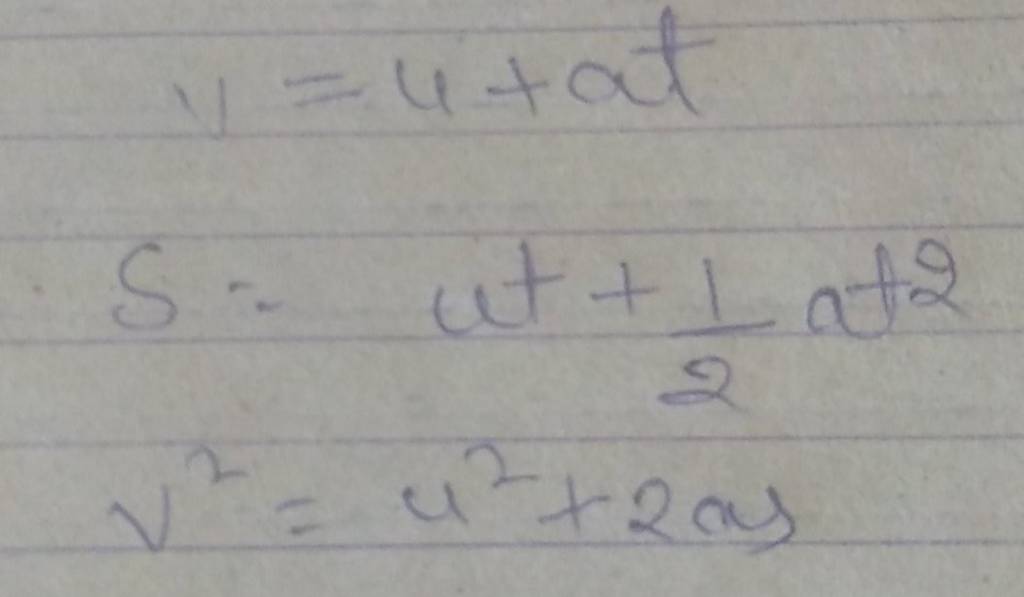 v = u + at
S = ut + 1/2 at2
v² = u² + 2as